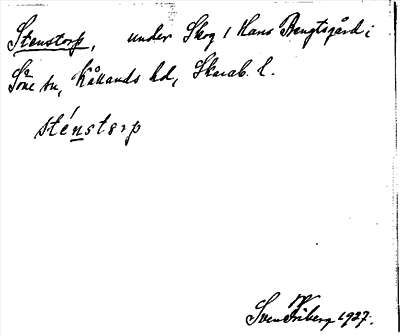 Stenstorp, under Skog 1 Hans Bengtsgård i
Söne sn, Kållands hd, Skarab. l.
sténstorp
Sven Friberg 1927.